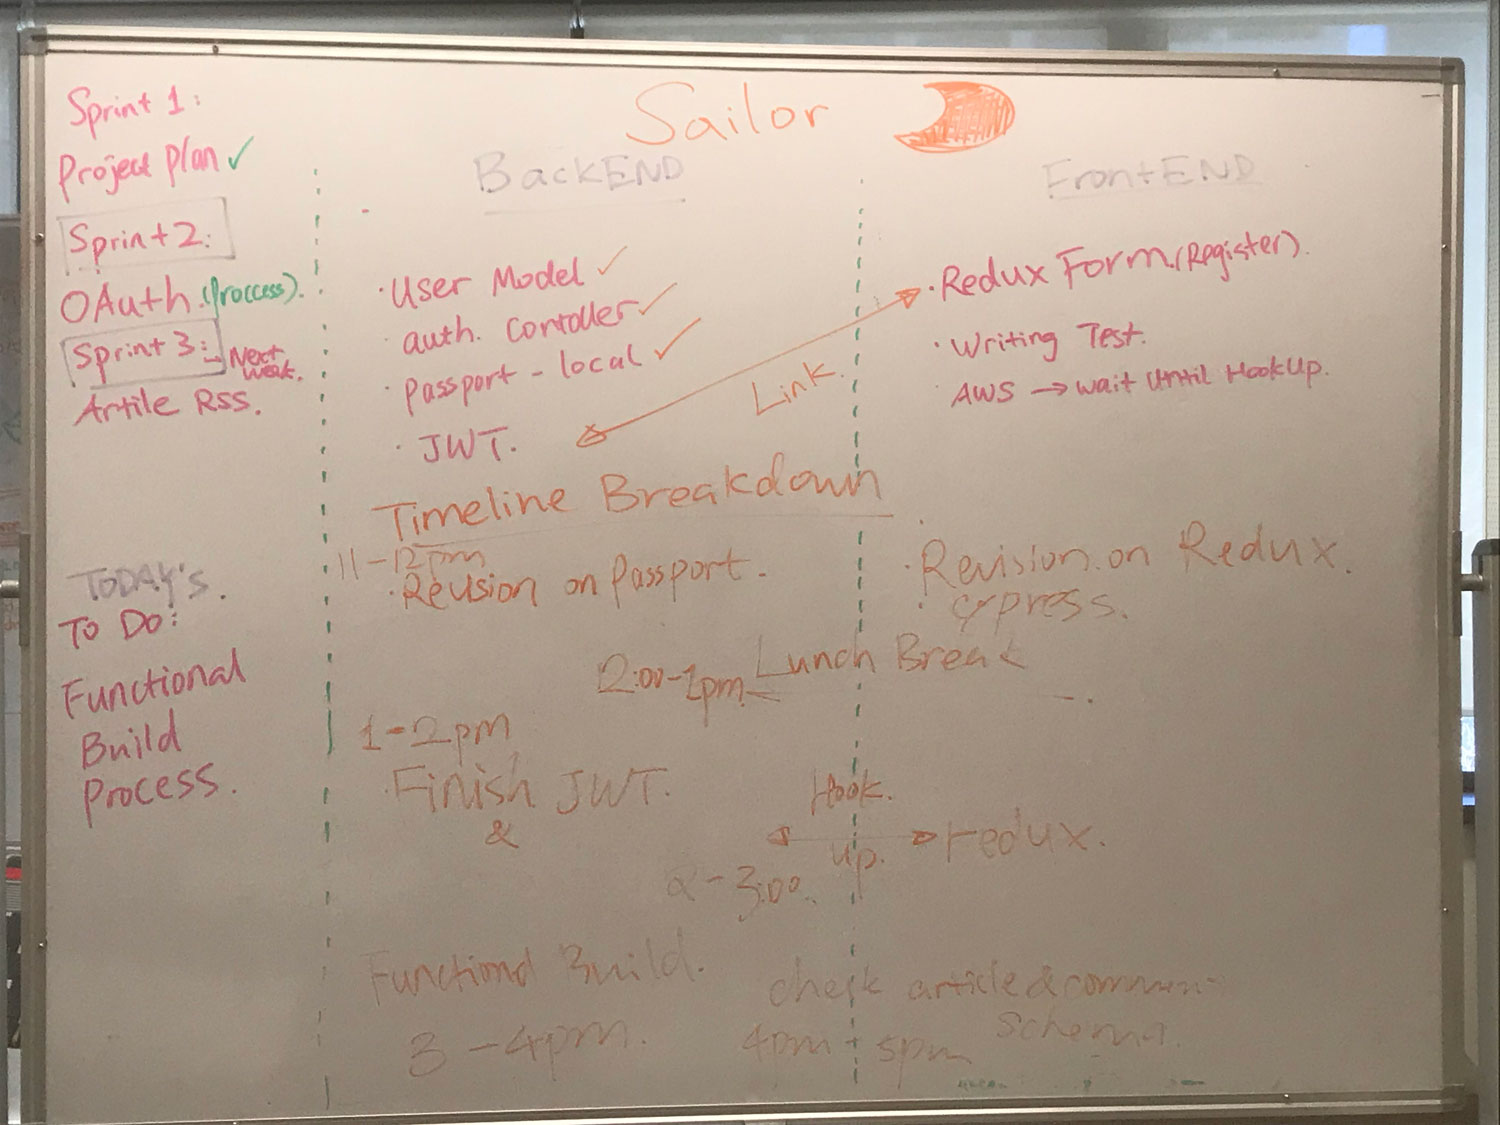 Sailor
Sprint 1:
Project plan ✓
Sprint 2:
OAuth. (Proccess).
Sprint 3: → Next
weak.
Artile RSS.
TODAY'S.
To Do:
Functional
Build
Process.
BackEND
· User Model ✓
· auth. Contoller ✓
· Passport - local ✓
· JWT.
Link.
FrontEND
· Redux Form. (Register).
· Writing Test.
· AWS → wait Until HookUp.
Timeline Breakdown
11-12pm
· Revision on Passport.
· Revision on Redux.
· express.
12:00-1pm Lunch Break
1-2pm
· Finish JWT.
&
Hook
up.
redux.
2-3:00.
Functional Build.
3-4pm.
check article & comment
Schema.
4pm - 5pm